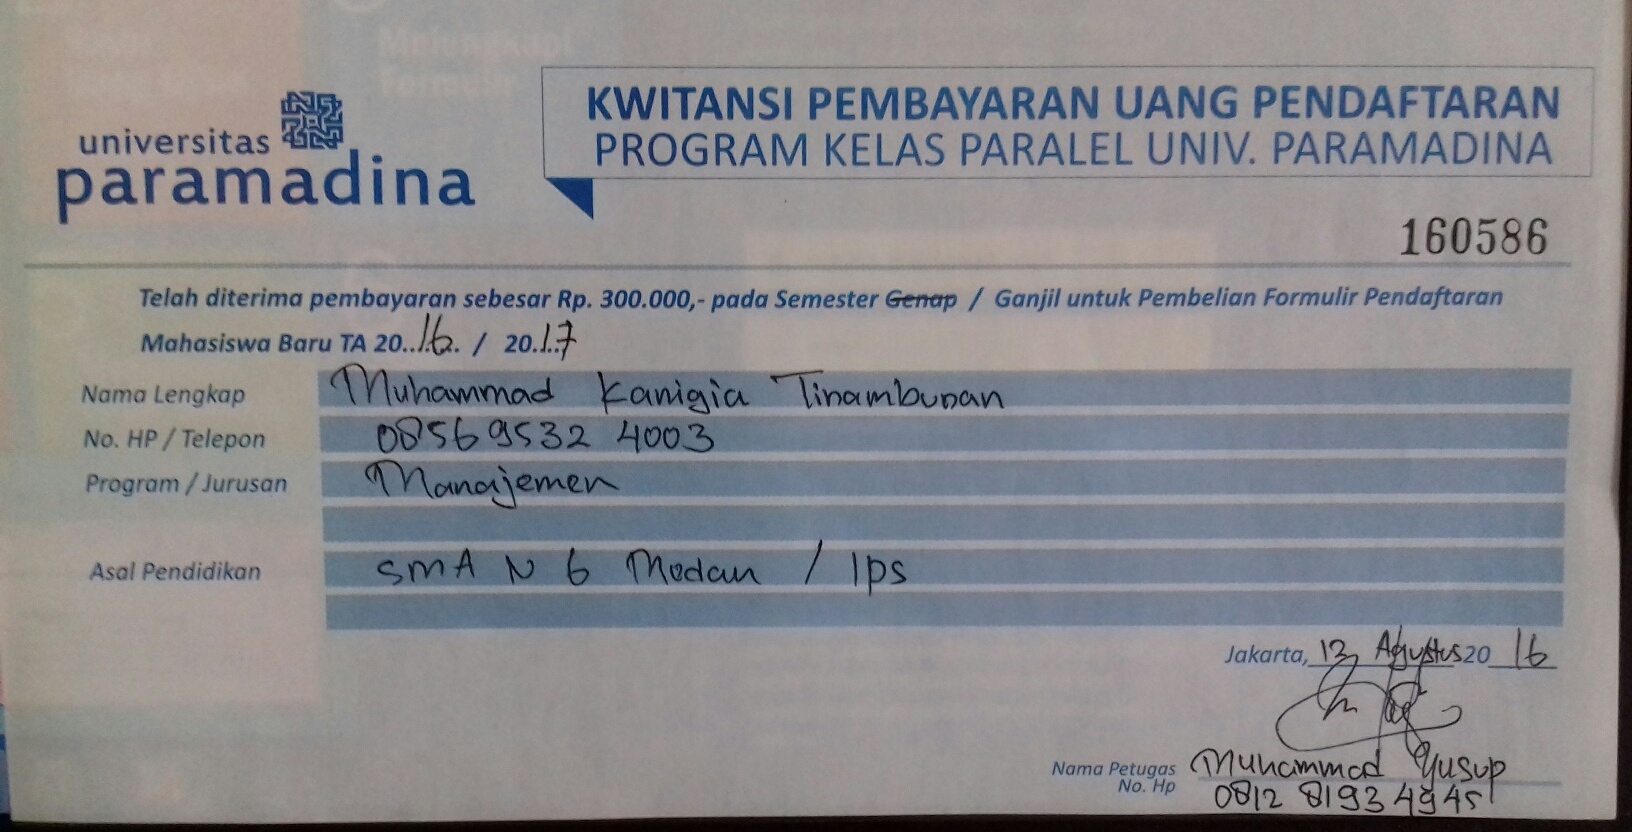 universitas
paramadina
KWITANSI PEMBAYARAN UANG PENDAFTARAN
PROGRAM KELAS PARALEL UNIV. PARAMADINA
160586
Telah diterima pembayaran sebesar Rp. 300.000,- pada Semester Genap / Ganjil untuk Pembelian Formulir Pendaftaran
Mahasiswa Baru TA 20..16.. / 20.17
Nama Lengkap Muhammad Kanigia Tinambunan
No. HP / Telepon 08569532 4003
Program / Jurusan Manajemen
Asal Pendidikan SMA N 6 Medan / IPS
Jakarta, 13 Agustus 20 16
Nama Petugas Muhammad Yusup
No. Hp 0812 8193 4945